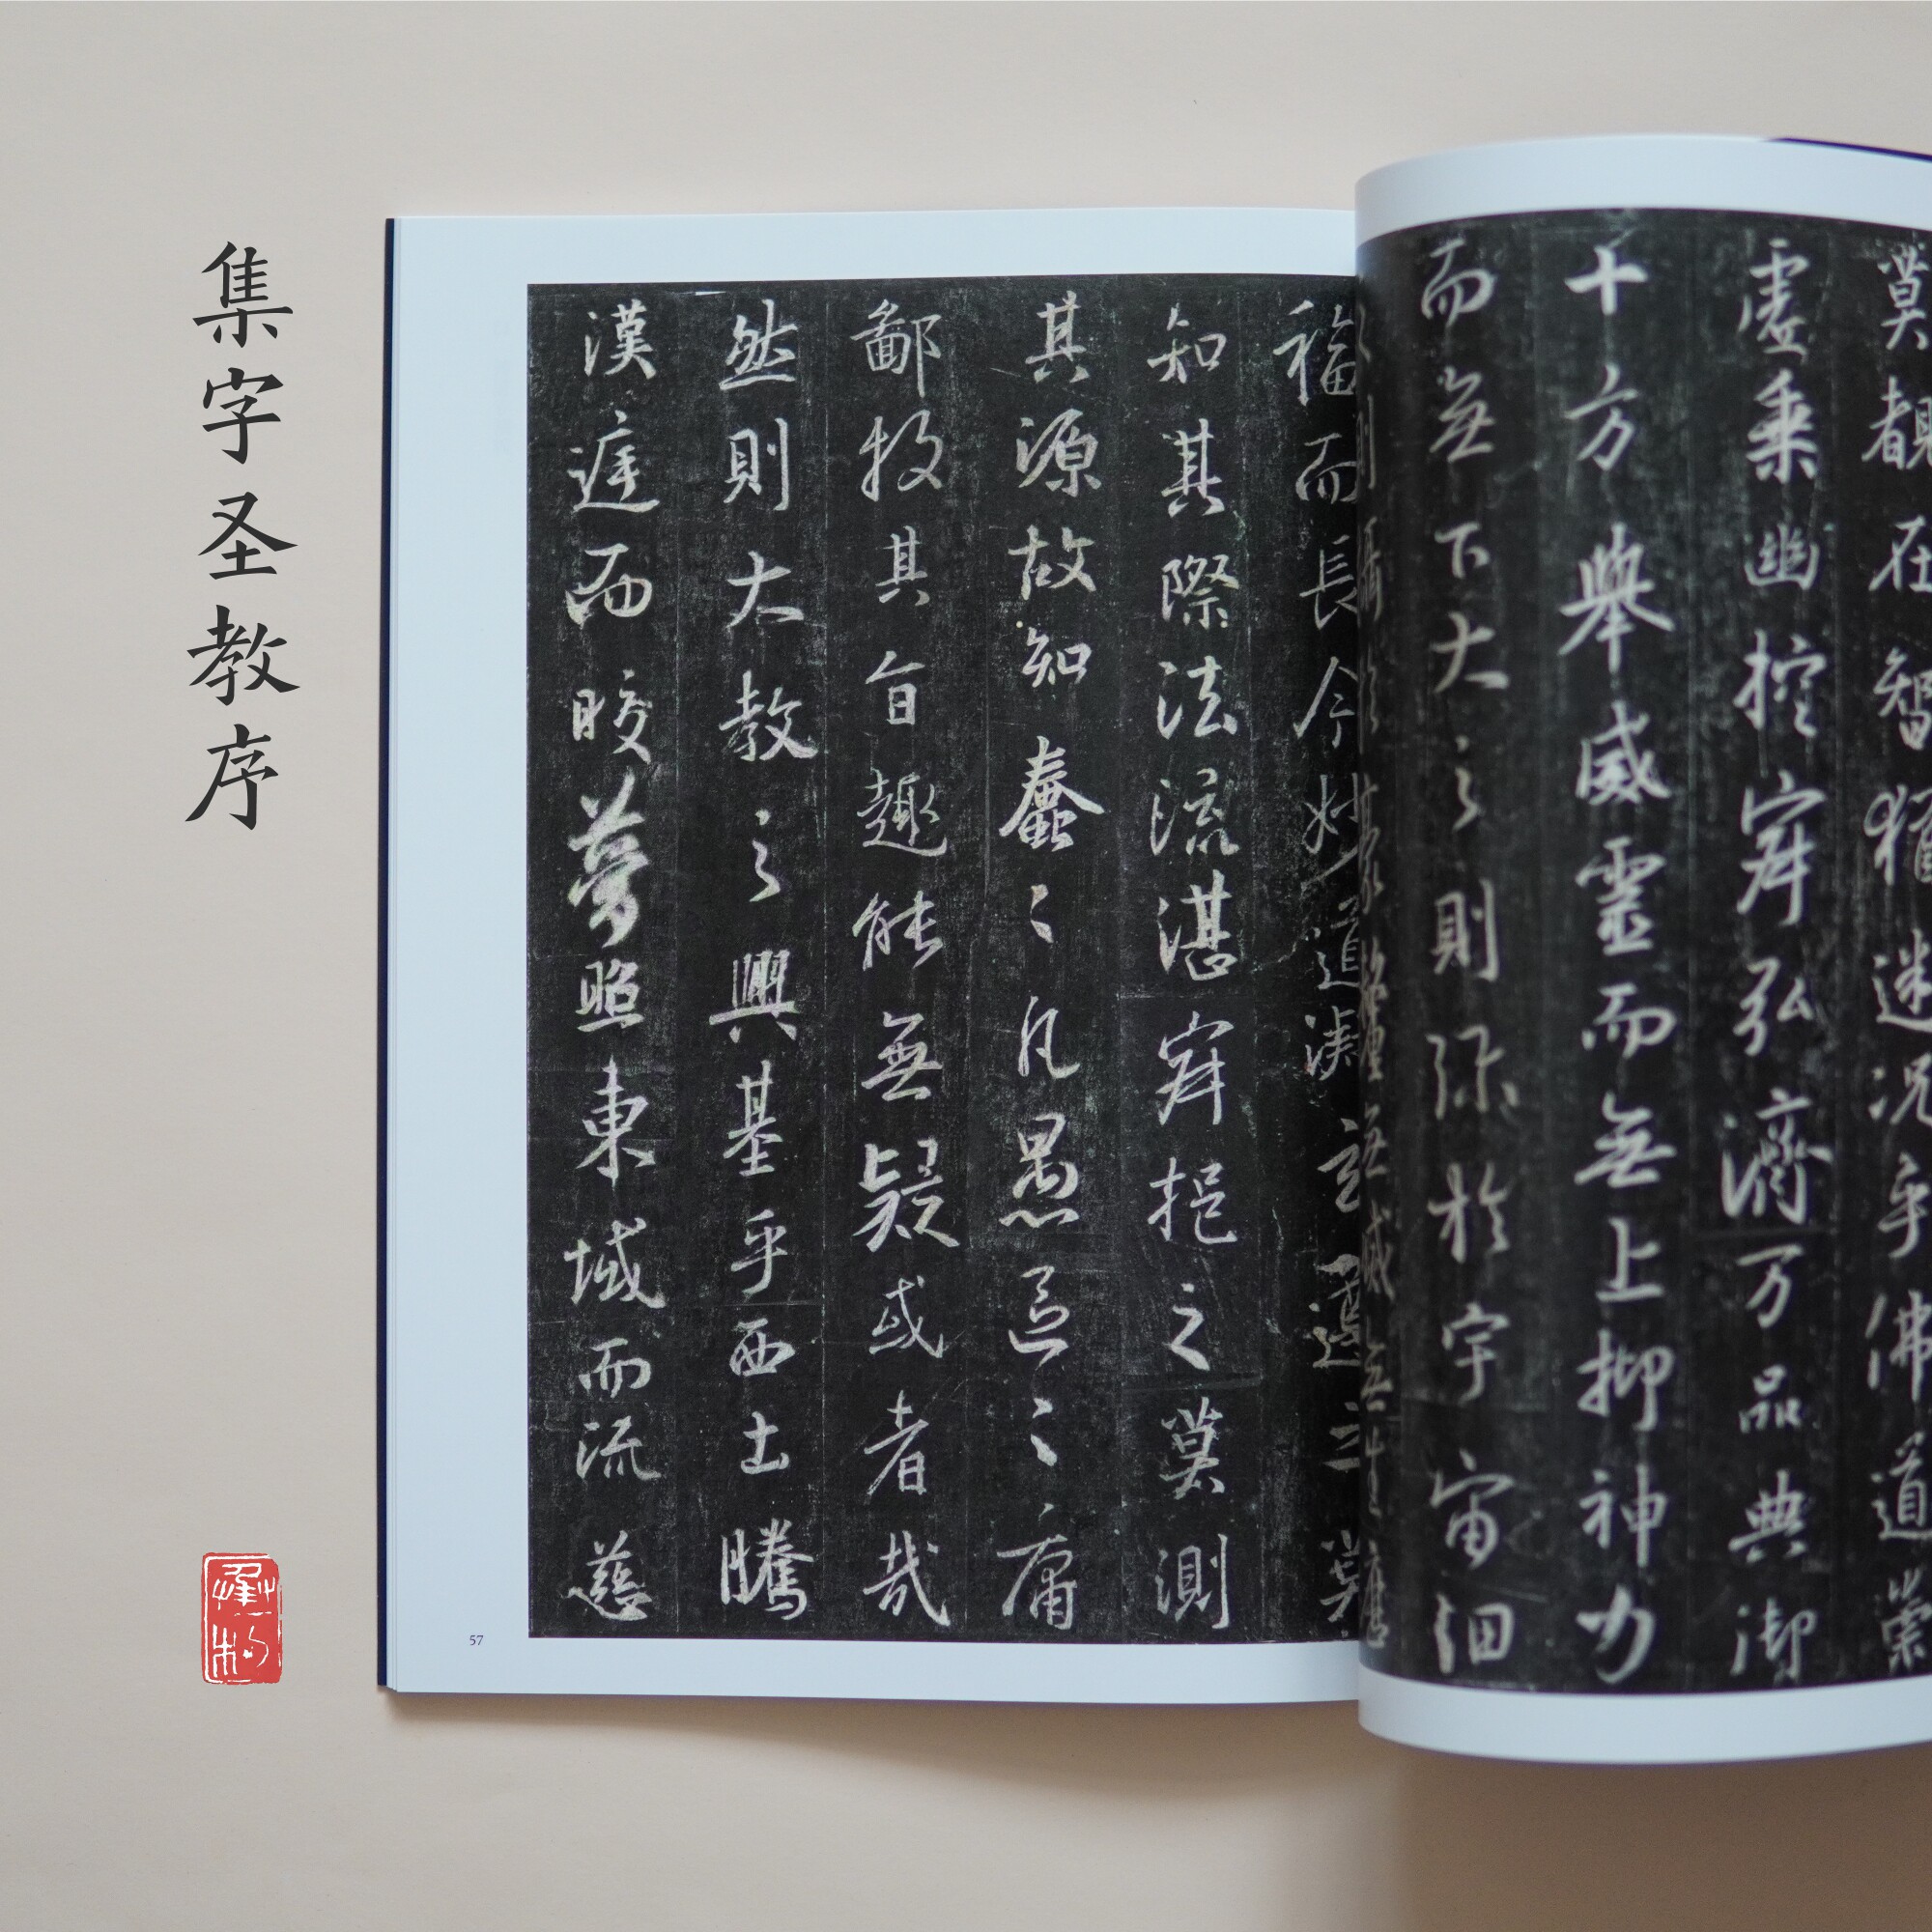 集字圣教序
莫覩在智猶迷况乎佛道崇
虚乘幽控寂弘濟万品典御
十方舉威靈而無上抑神力
而無下大之則弥於宇宙細
則攝於豪釐無滅無生歷
福而長今妙道凝玄遵之莫
知其際法流湛寂挹之莫測
其源故知蠢〻凡愚區〻庸
鄙投其旨趣能無疑或者哉
然則大教之興基乎西土騰
漢庭而皎夢照東域而流慈
57